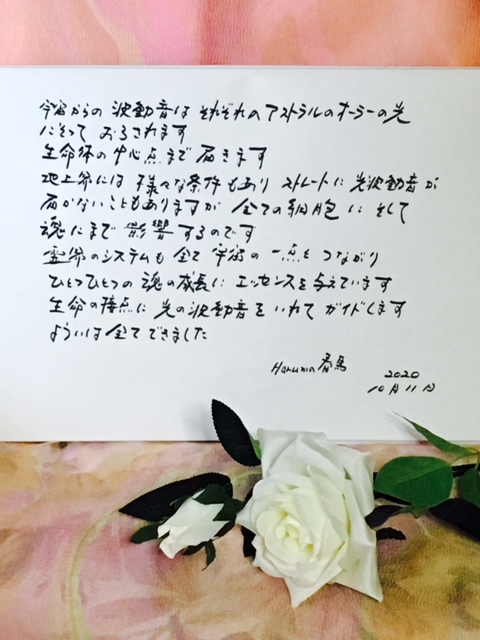 宇宙からの 波動音は それぞれの アストラルの オーラーの 光
にそって おろされます
生命体の 中心点まで 届きます
地上界には 様々な条件もあり ストレートに 光波動音が
届かないこともありますが 全ての細胞に そして
魂にまで 影響するのです
霊界のシステムも 全て 宇宙の 一点と つながり
ひとつひとつの 魂の成長に エッセンスを 与えています
生命の接点に 光の波動音を いれて ガイドします
よういは 全て できました
Haruma 春馬 2020
10月11日